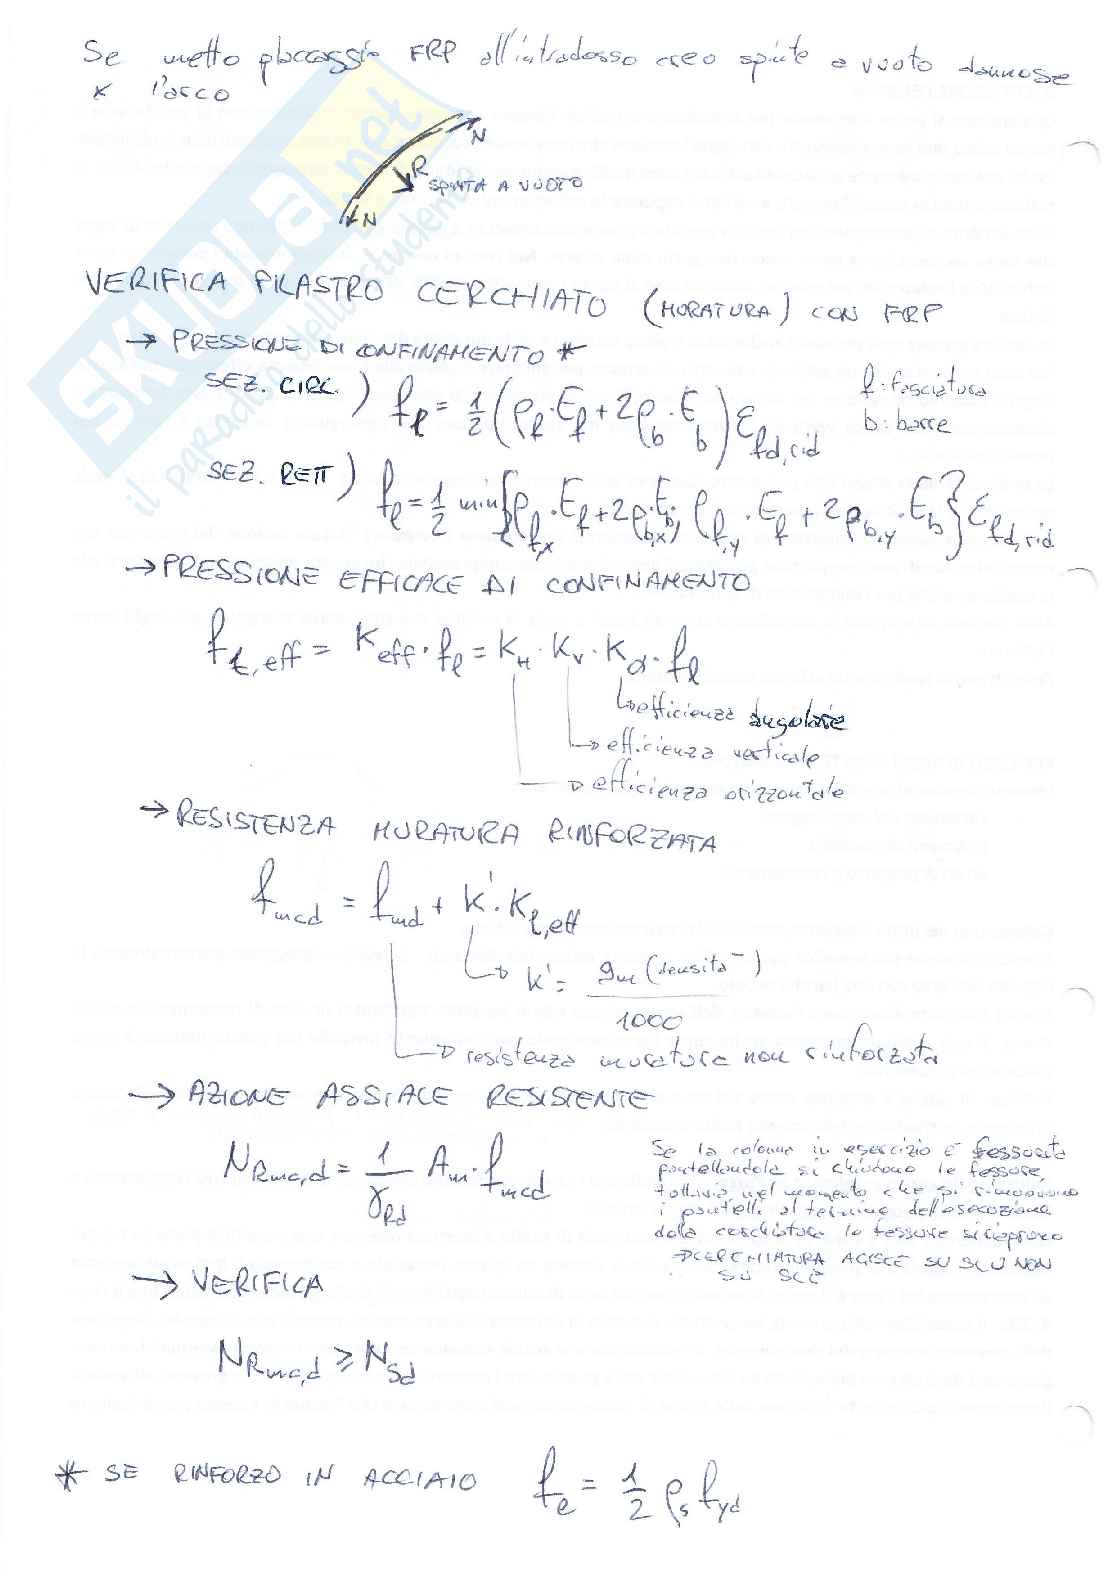 Se metto placcaggio FRP all'intradosso creo spinte a vuoto dannose
x l'arco
N
R
SPINTA A VUOTO
N
SKUOLA.net
il paradiso dello studente
VERIFICA PILASTRO CERCHIATO (MURATURA) CON FRP
→ PRESSIONE DI CONFINAMENTO *
SEZ. CIRC.) f_l = 1/2 (ρ_f · E_f + 2ρ_b · E_b) ε_fd,rid
f: fasciatura
b: barre
SEZ. RETT) f_l = 1/2 min{ρ_f,x · E_f + 2ρ_b,x · E_b; ρ_f,y · E_f + 2ρ_b,y · E_b} ε_fd,rid
→ PRESSIONE EFFICACE DI CONFINAMENTO
f_l,eff = K_eff · f_l = K_H · K_V · K_α · f_l
↳ efficienza angolare
→ efficienza verticale
→ efficienza orizzontale
→ RESISTENZA MURATURA RINFORZATA
f_mcd = f_md + K' · K_l,eff
→ K' = g_m (densità) / 1000
→ resistenza muratura non rinforzata
→ AZIONE ASSIALE RESISTENTE
N_Rmc,d = 1/γ_Rd A_m · f_mcd
Se la colonna in esercizio è fessurata
puntellandola si chiudono le fessure,
tuttavia nel momento che si rimuovono
i puntelli al termine dell'esecuzione
della cerchiatura le fessure si riaprono
→ CERCHIATURA AGISCE SU SLU NON
SU SLE
→ VERIFICA
N_Rmc,d ≥ N_Sd
* SE RINFORZO IN ACCIAIO f_e = 1/2 ρ_s f_yd